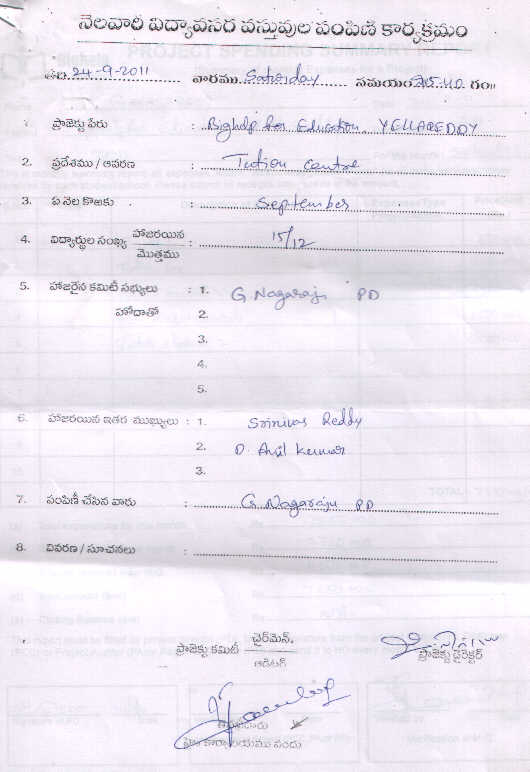 నెలవారి విద్యావసర వస్తువుల పంపిణి కార్యక్రమం
తేది 24-9-2011 వారము Saturday సమయం 5.40 గం॥
1. ప్రాజెక్టు పేరు : Bighelp for Education, YELLAREDDY
2. ప్రదేశము / ఆవరణ : Tution Centre
3. ఏ నెల కొఱకు : September
4. విద్యార్థుల సంఖ్య హాజరయిన / మొత్తము : 15/12
5. హాజరైన కమిటీ సభ్యులు : 1. G Nagaraju PD
హోదాతో 2.
3.
4.
5.
6. హాజరయిన ఇతర ముఖ్యులు : 1. Srinivas Reddy
2. D. Anil Kumar
3.
7. పంపిణీ చేసిన వారు : G. Nagaraju PD
8. వివరణ / సూచనలు :
ప్రాజెక్టు కమిటీ చైర్‌మెన్. / ఆడిటర్
ప్రాజెక్టు డైరెక్టర్
కార్యాలయము నందు